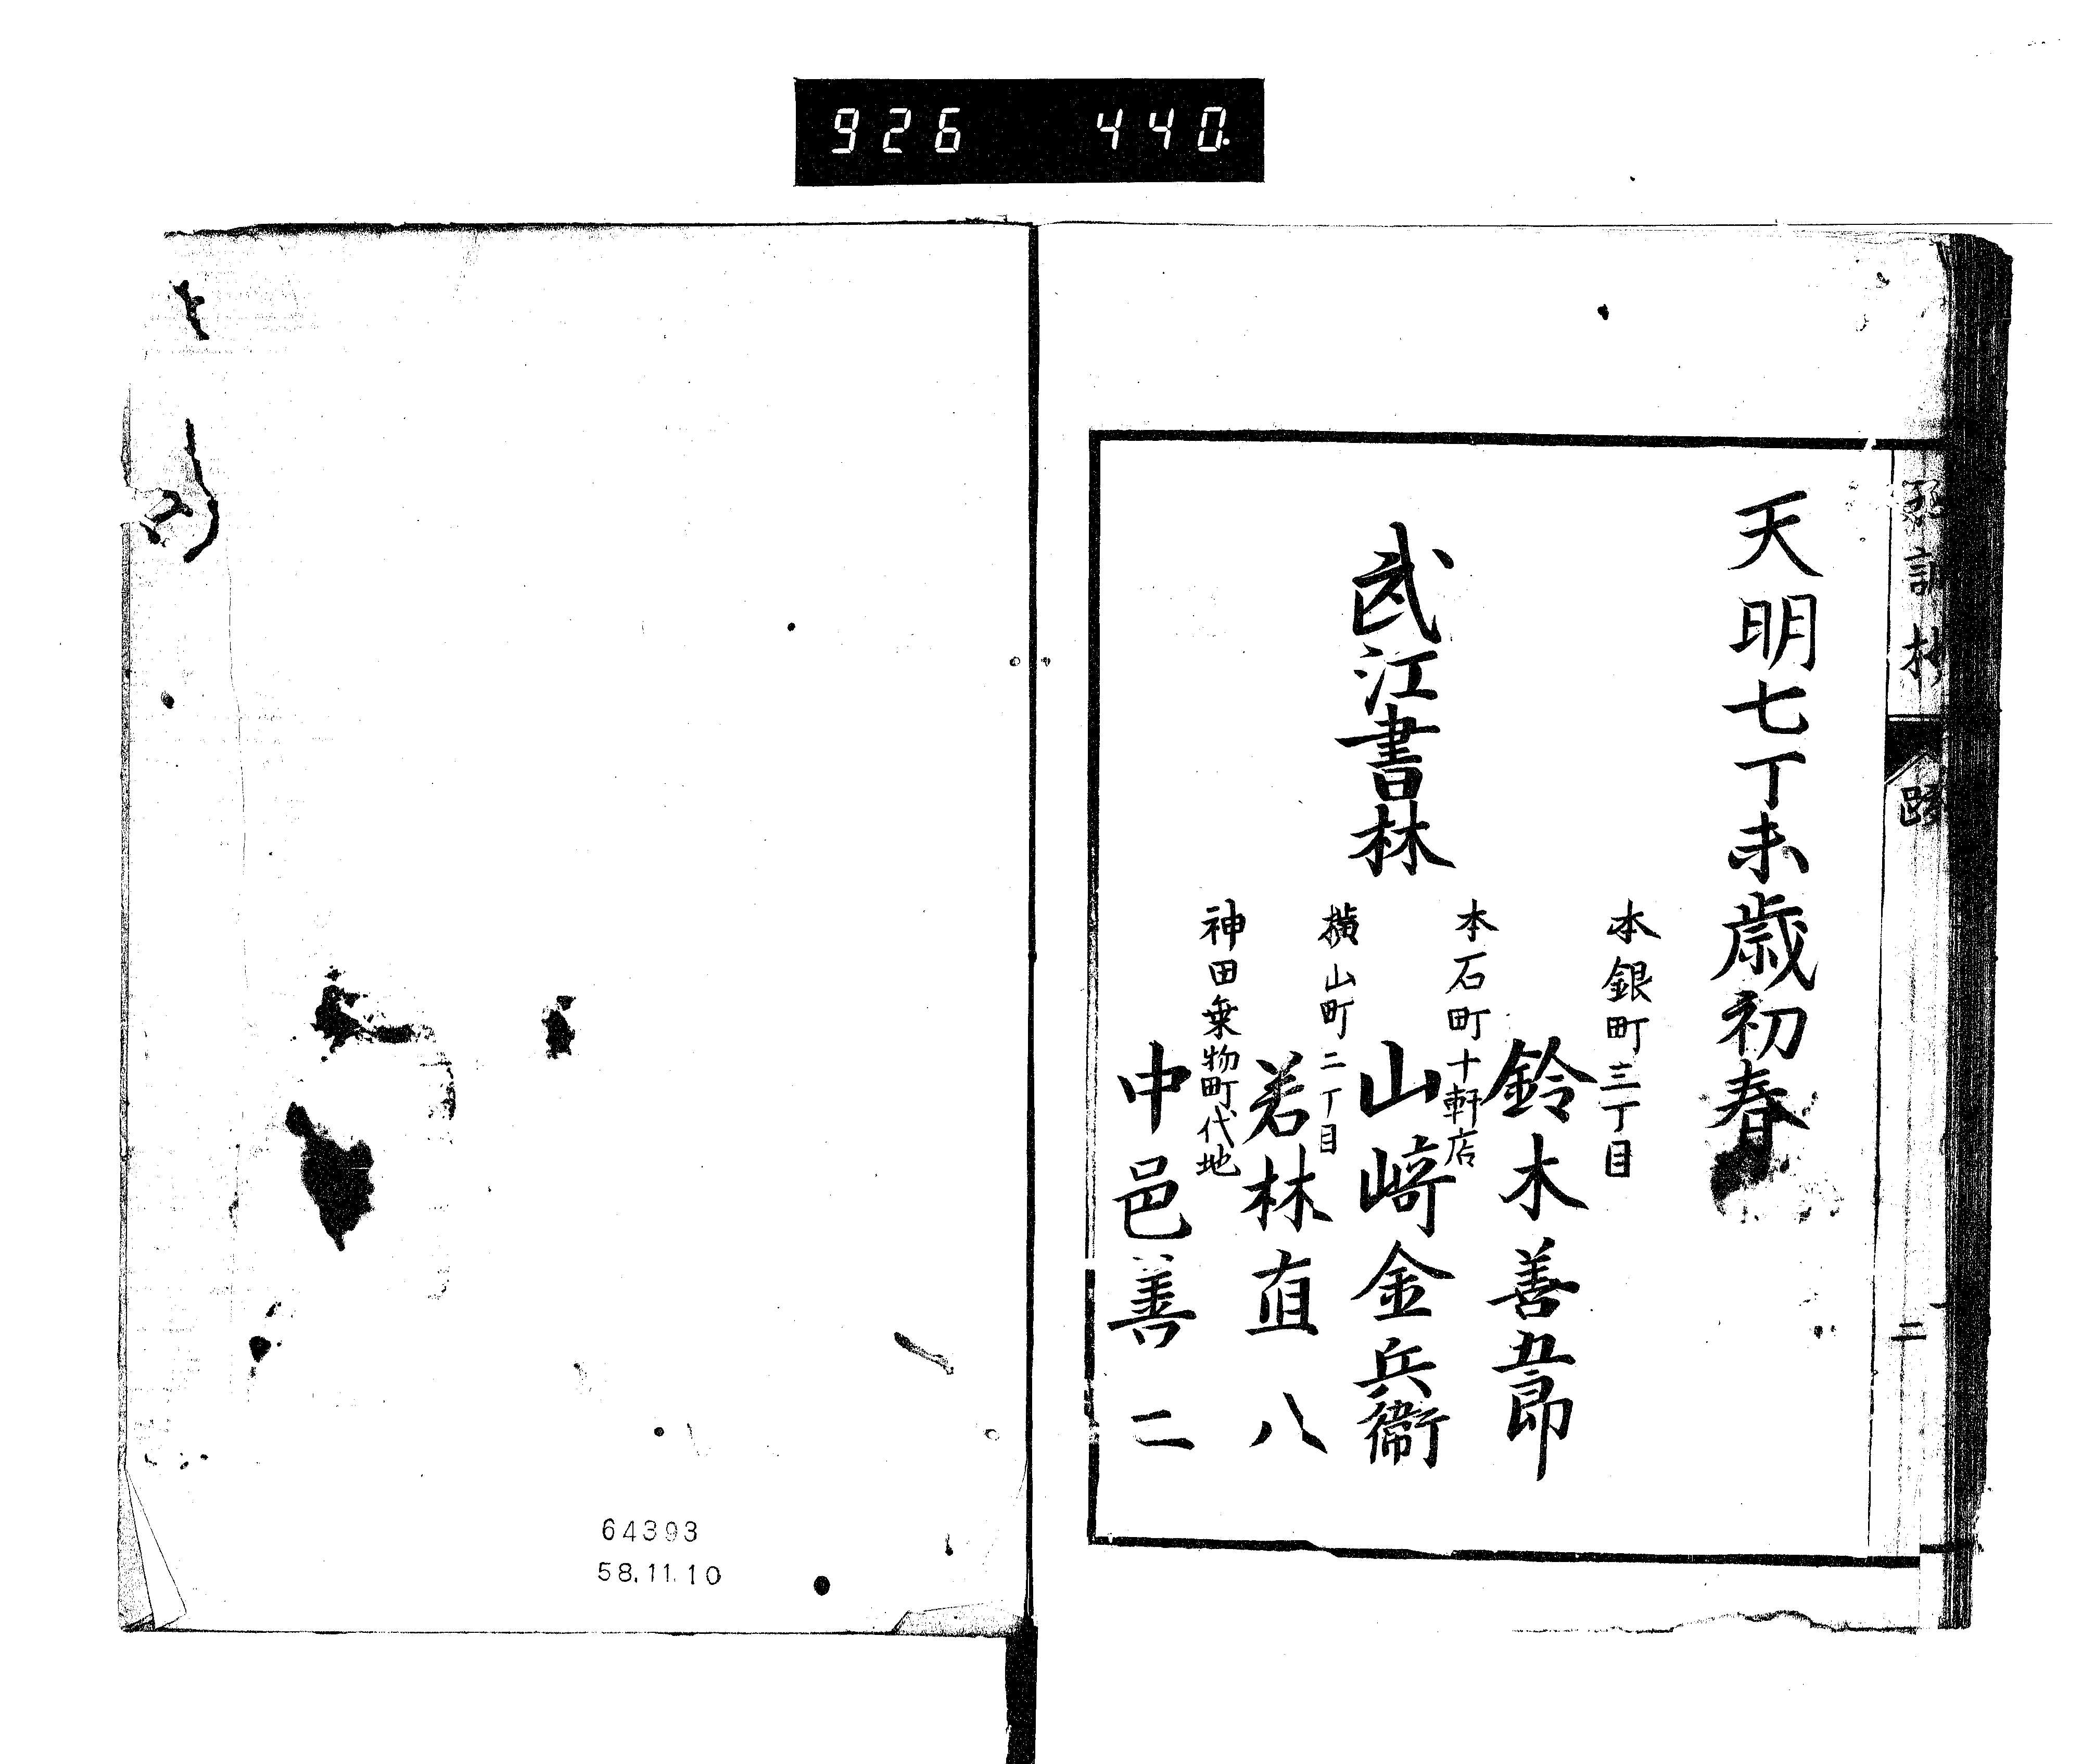 926 440
天明七丁未歳初春
武江書林
本銀町三丁目
鈴木善五郎
本石町十軒店
山﨑金兵衞
橫山町二丁目
若林直八
神田乗物町代地
中邑善二
二
64393
58.11.10